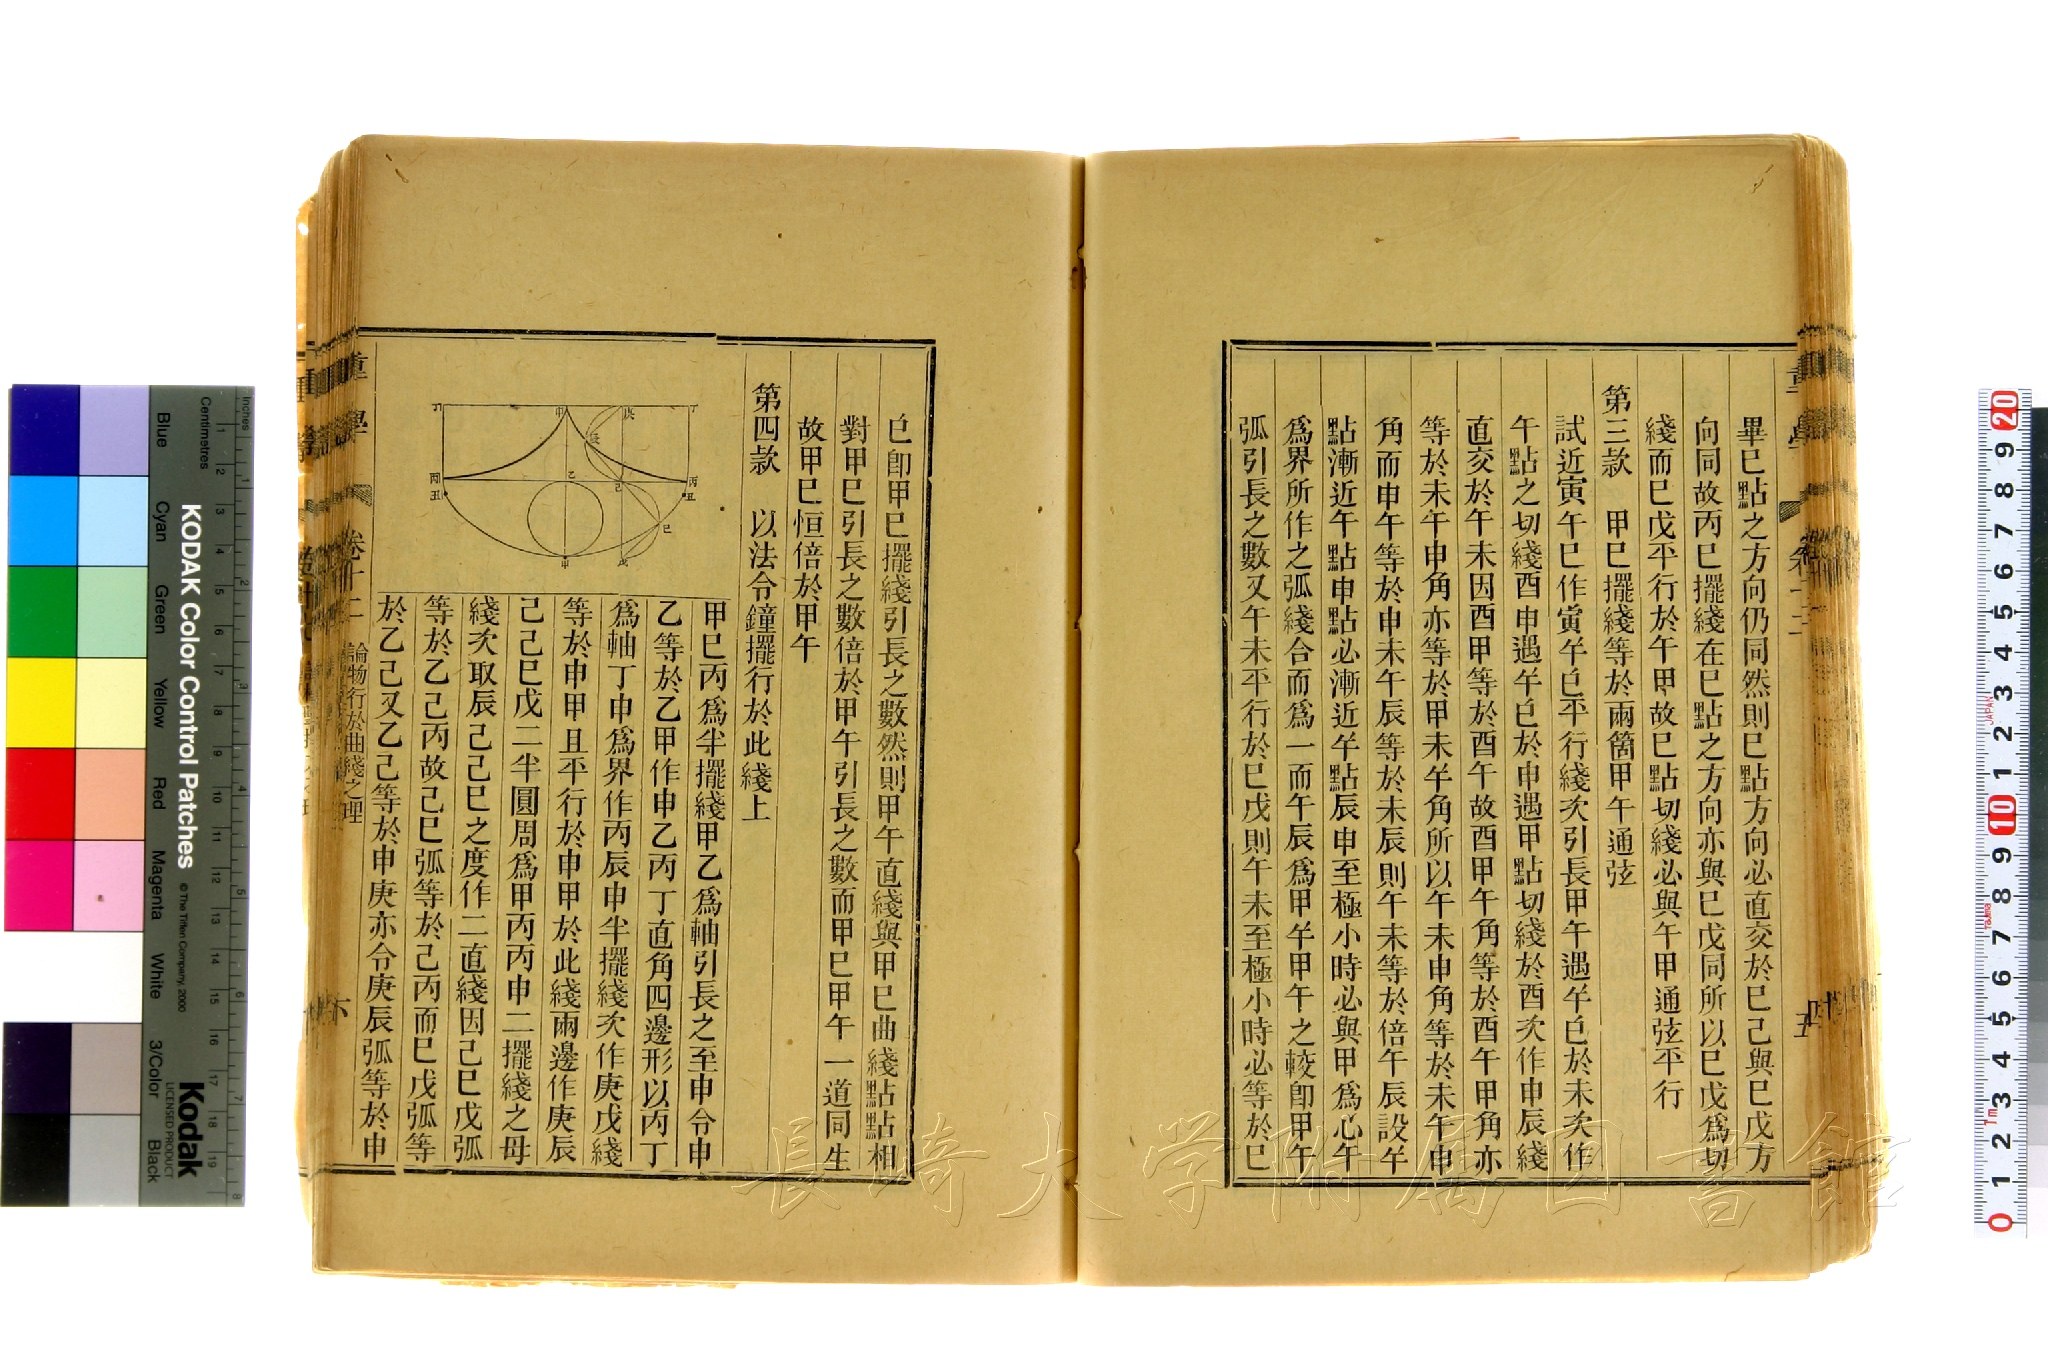 重學
卷十二
畢巳點之方向仍同然則巳點方向必直交於巳己與巳戊方
向同故丙巳擺綫在巳點之方向亦與巳戊同所以巳戊爲切
綫而巳戊平行於午甲故巳點切綫必與午甲通弦平行
第三款　甲巳擺綫等於兩箇甲午通弦
試近寅午巳作寅午巳平行綫次引長甲午遇午巳於未次作
午點之切綫酉申遇午巳於申遇甲點切綫於酉次作申辰綫
直交於午未因酉甲等於酉午故酉甲午角等於酉午甲角亦
等於未午申角亦等於甲未午角所以午未申角等於未午申
角而申午等於申未午辰等於未辰則午未等於倍午辰設午
點漸近午點申點必漸近午點辰申至極小時必與甲爲心午
爲界所作之弧綫合而爲一而午辰爲甲午甲午之較卽甲午
弧引長之數又午未平行於巳戊則午未至極小時必等於巳
巳卽甲巳擺綫引長之數然則甲午直綫與甲巳曲綫點點相
對甲巳引長之數倍於甲午引長之數而甲巳甲午一道同生
故甲巳恒倍於甲午
第四款　以法令鐘擺行於此綫上
丁
申
戊
丁
辰
丙
丑
乙
己
丙
丑
巳
甲
戊
甲巳丙爲半擺綫甲乙爲軸引長之至申令申
乙等於乙甲作申乙丙丁直角四邊形以丙丁
爲軸丁申爲界作丙辰申半擺綫次作庚戊綫
等於申甲且平行於申甲於此綫兩邊作庚辰
己己巳戊二半圓周爲甲丙丙申二擺綫之母
綫次取辰己己巳之度作二直綫因己巳戊弧
等於乙己丙故己巳弧等於己丙而巳戊弧等
於乙己又乙己等於申庚亦令庚辰弧等於申
重學
卷十二
論物行於曲綫之理
KODAK Color Control Patches
© The Tiffen Company, 2000
Kodak
LICENSED PRODUCT
Inches
Centimetres
Blue
Cyan
Green
Yellow
Red
Magenta
White
3/Color
Black
長崎大学附属図書館
JAPAN